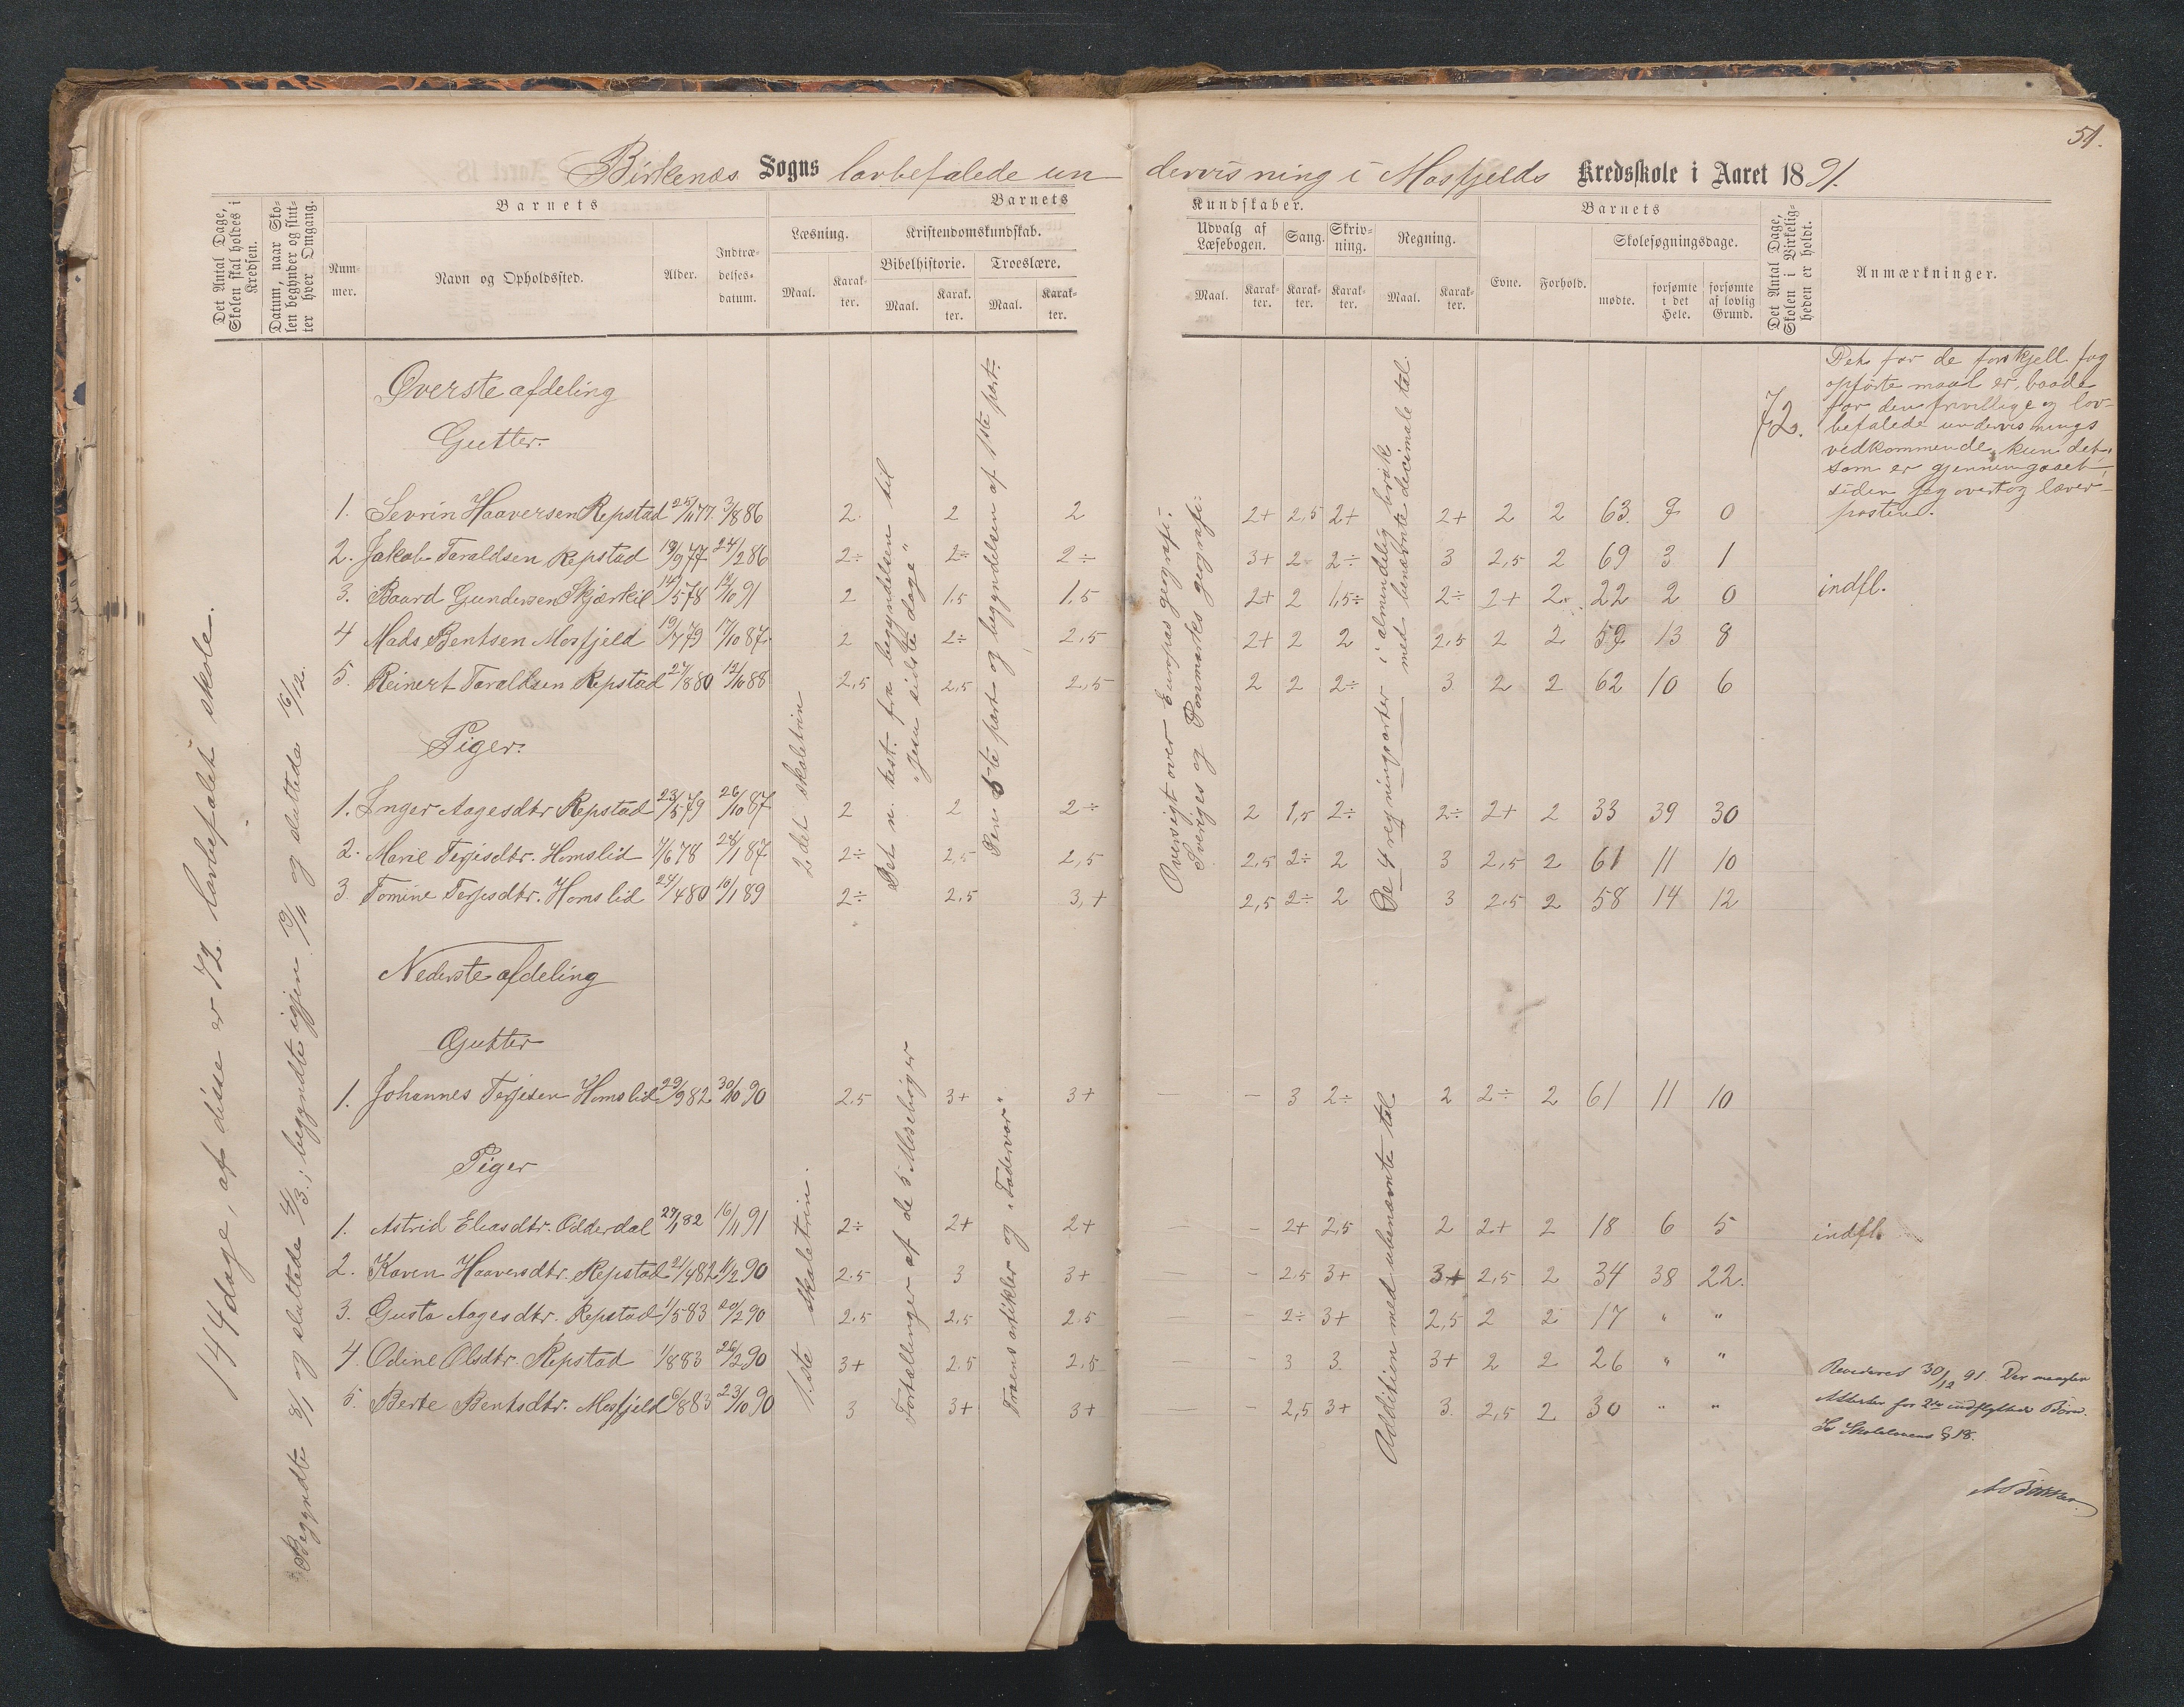 51.
Birkenæs Sogns lovbefalede undervisning i Mosfjelds Kredsskole i Aaret 1891.
Det Antal Dage, Skolen skal holdes i Kredsen.
Datum, naar Skolen begynder og slutter hver Omgang.
Barnets
Nummer.
Navn og Opholdssted.
Alder.
Indtrædelsesdatum.
Barnets
Læsning.
Maal.
Karakter.
Kristendomskundskab.
Bibelhistorie.
Maal.
Karakter.
Troeslære.
Maal.
Karakter.
Kundskaber.
Udvalg af Læsebogen.
Maal.
Karakter.
Sang.
Karakter.
Skrivning.
Karakter.
Regning.
Maal.
Karakter.
Barnets
Evne.
Forhold.
Skolesøgningsdage.
mødte.
forsømte i det Hele.
forsømte af lovlig Grund.
Det Antal Dage, Skolen i Virkeligheden er holdt.
Anmærkninger.
144 dage, af disse er 72 lovbefalet skole.
Begyndte 8/1 og sluttede 4/3.; begyndte igjen 19/11 og sluttede 16/12.
2det skoletrin
Det n. test. fra begyndelsen til "Jesu sidste dage"
Den 5te part og begyndelsen af 1ste part.
Oversigt over Europas geografi.
Sveriges og Danmarks geografi.
De 4 regningsarter i almindelig brøk
med benævnte decimale tal.
72.
Det for de forskjell. fag
opførte maal er, baade
for den frivillige og lov-
befalede undervisnings
vedkommende, kun det,
som er gjennemgaaet,
siden jeg overtog lærer-
posten.
Øverste afdeling
Gutter.
1. Sevrin Haaversen Repstad 25/11 77. 3/8 86 2 2 2 2+ 2,5 2+ 2+ 2 2 63. 9 0
2. Jakob Taraldsen Repstad 19/9 77 24/2 86 2÷ 2÷ 2÷ 3+ 2 2÷ 3 2,5 2 69 3 1
3. Baard Gundersen Skjærkil 14/5 78 12/10 91 2 1,5 1,5 2+ 2 1,5÷ 2÷ 2+ 2 22 2 0 indfl.
4 Mads Bentsen Mosfjeld 19/7 79 17/10 87 2 2÷ 2,5 2+ 2 2 2,5 2 2 59 13 8
5. Reinert Taraldsen Repstad 27/8 80 12/10 88 2,5 2,5 2,5 2 2 2÷ 3 2 2 62 10 6
Piger.
1. Inger Aagesdtr Repstad 23/5 79 26/10 87 2 2 2÷ 2 1,5 2÷ 2÷ 2+ 2 33 39 30
2. Marie Terjesdtr. Homslid 1/6 78 28/1 87 2÷ 2,5 2,5 2,5 2÷ 2 3 2,5 2 61 11 10
3. Tomine Terjesdtr. Homslid 24/4 80 16/1 89 2÷ 2,5 3,+ 2,5 2÷ 2 3 2,5 2 58 14 12
Nederste afdeling
Gutter
1. Johannes Terjesen Homslid 29/9 82 30/10 90 2,5 3+ 3+ — — 3 2÷ 2 2÷ 2 61 11 10
Piger
1ste skoletrin.
Fortællinger af de 5 Mosebøger
Troens artikler og "Fadervor"
Addition med ubenævnte tal
1. Astrid Eliasdtr. Odderdal 27/1 82 16/11 91 2÷ 2+ 2+ — — 2+ 2,5 2 2+ 2 18 6 5 indfl.
2. Karen Haaversdtr. Repstad 21/4 82 11/2 90 2,5 3 3+ — — 2,5 3+ 3+ 2,5 2 34 38 22.
3. Gusta Aagesdtr. Repstad 1/5 83 20/2 90 2,5 2,5 2,5 — — 2÷ 3+ 2,5 2 2 17 " "
4. Odine Olsdtr. Repstad 1/8 83 26/2 90 3+ 2,5 2,5 — — 3 3 3+ 2 2 26 " "
5. Berte Bentsdtr. Mosfjeld 6/8 83 23/10 90 3 3+ 3+ — — 2,5 3+ 3. 2,5 2 30 " "
Revideret 30/12 91. Der mangler
Attester for 2de indflyttede Børn.
Se Skolelovens § 18.